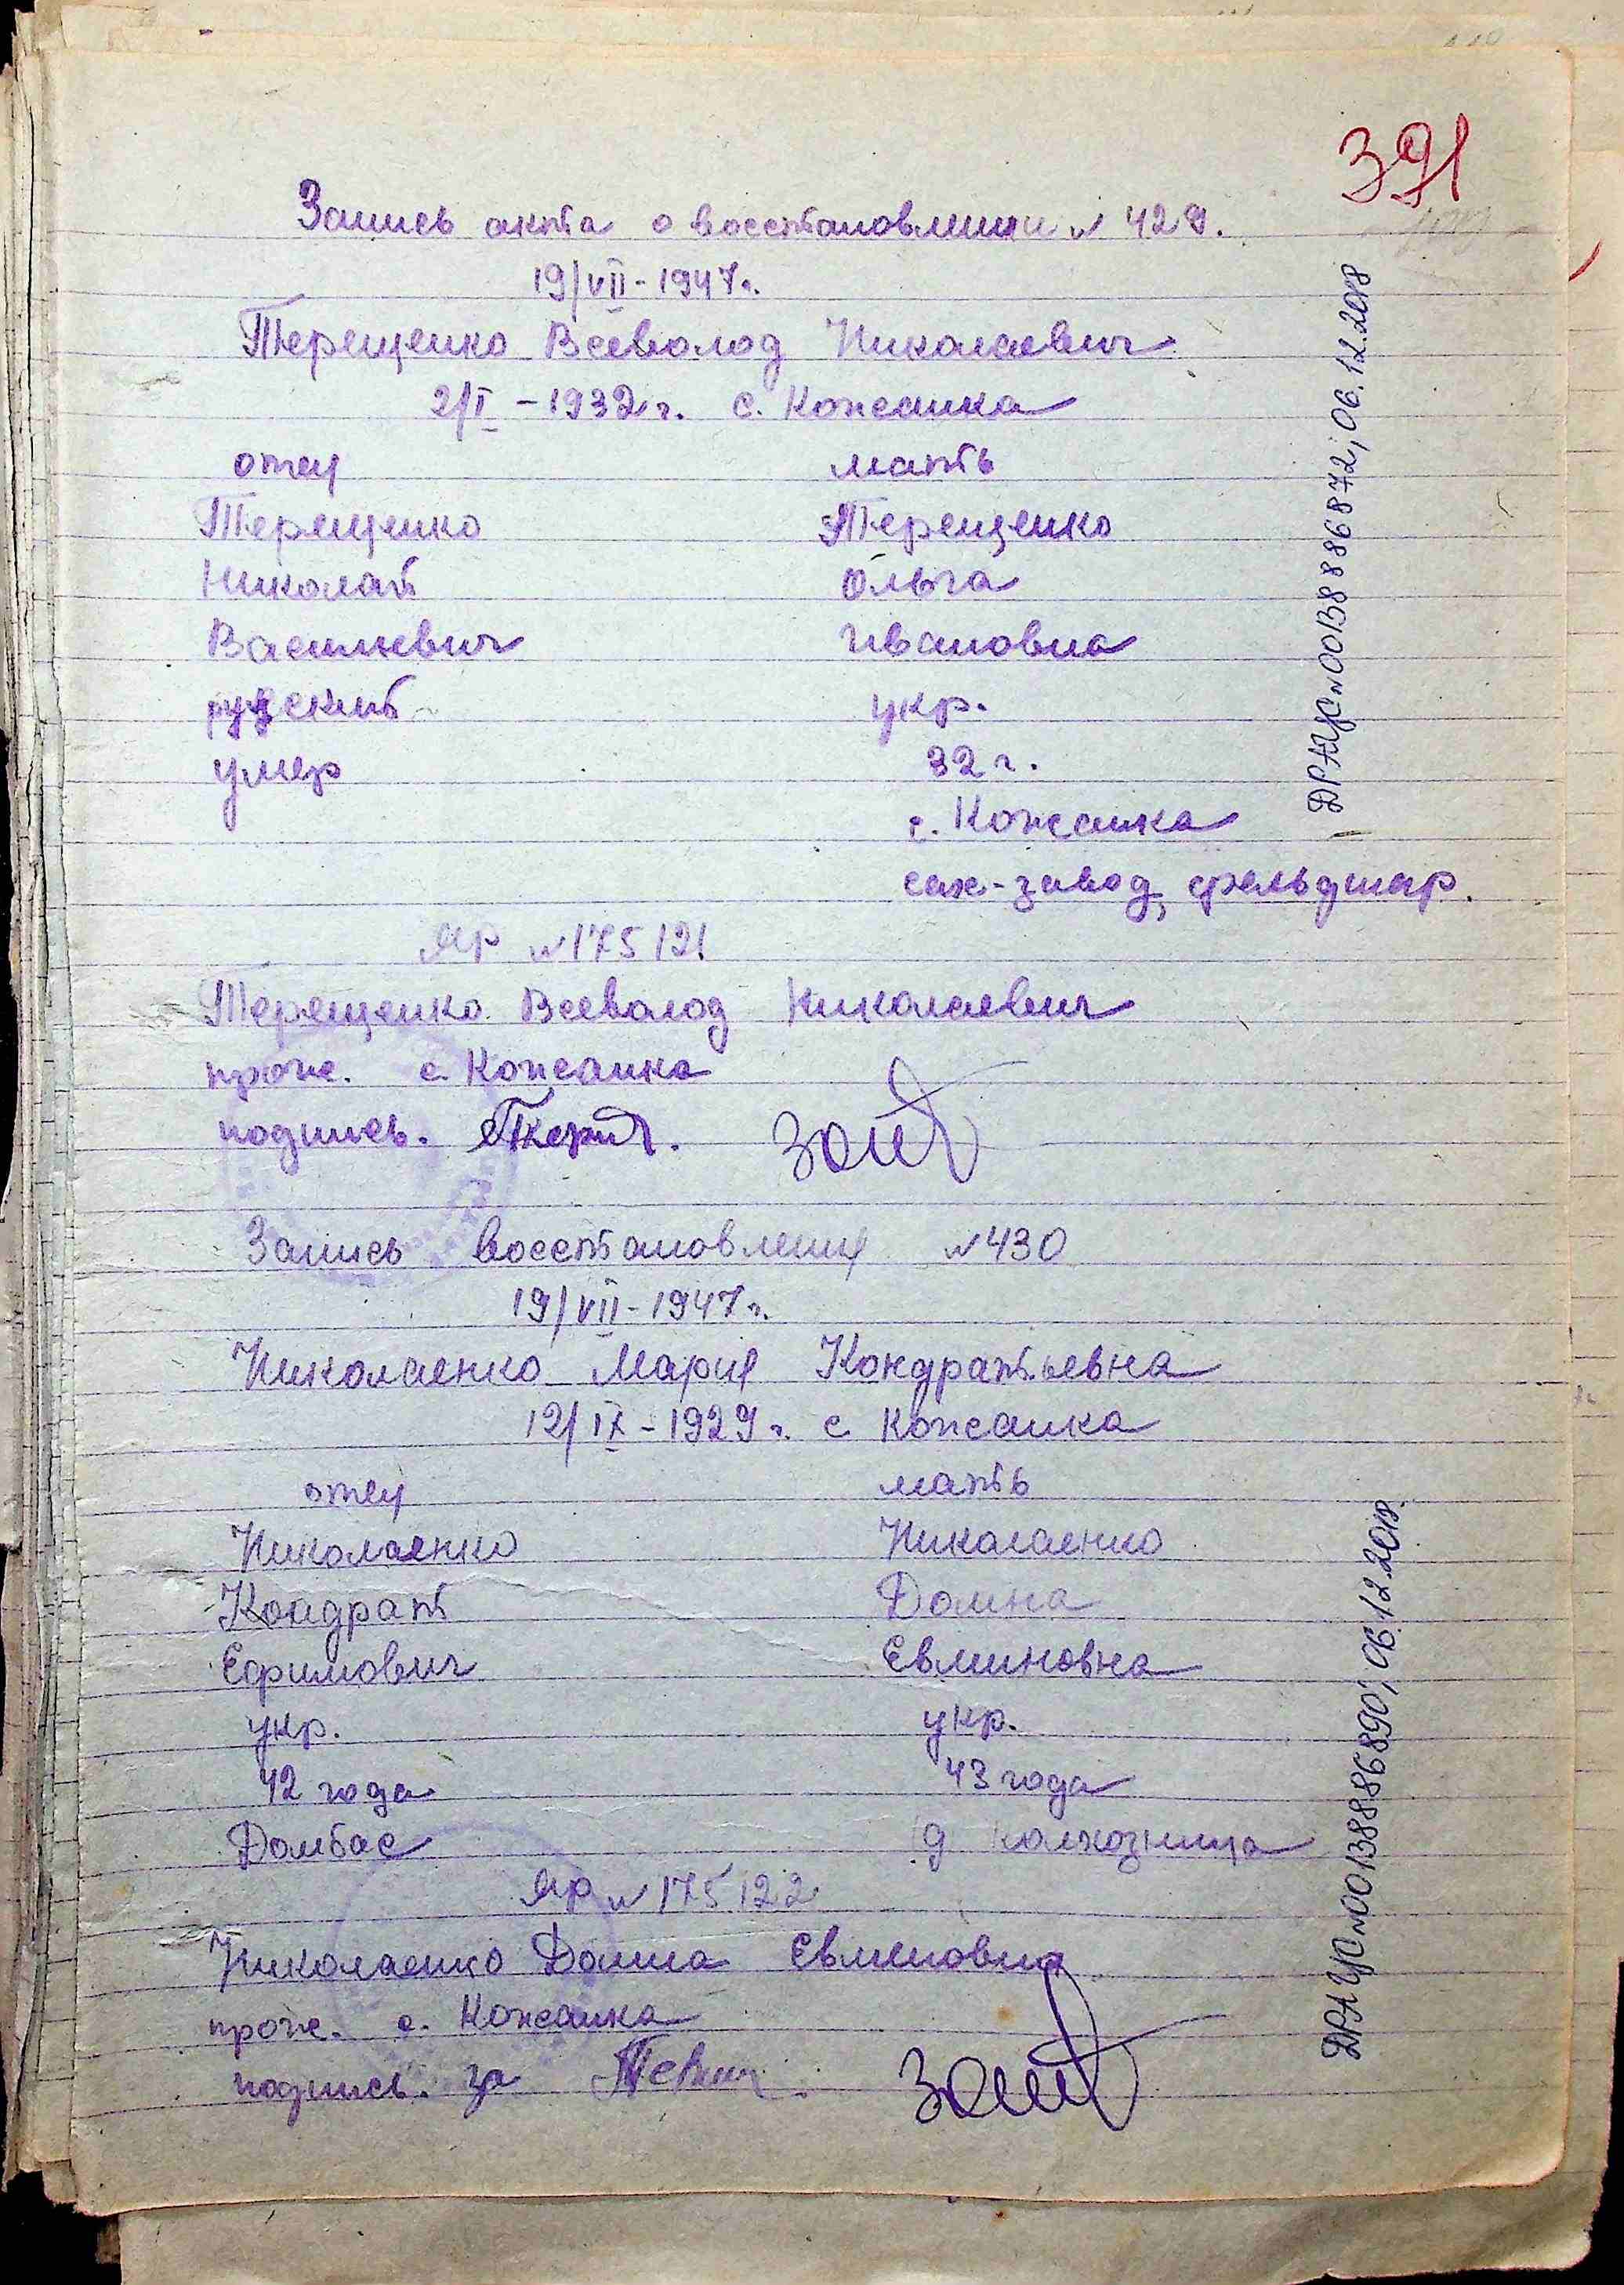 391
Запись акта о восстановлении № 429.
19/VII - 1947 г.
Терещенко Всеволод Николаевич
2/I - 1932 г. с. Кожанка
отец мать
Терещенко Терещенко
Николай Ольга
Васильевич Ивановна
русский укр.
умер 32 г.
с. Кожанка
сах-завод, фельдшер.
ЯР № 175121
Терещенко Всеволод Николаевич
прож. с. Кожанка
подпись.
Запись восстановления № 430
19/VII - 1947 г.
Николаенко Мария Кондратьевна
12/IX - 1929 г. с Кожанка
отец мать
Николаенко Николаенко
Кондрат Домна
Ефимович Евминовна
укр. укр.
42 года 43 года
Домбас колхозница
ЯР № 175122
Николаенко Домна Евминовна
прож. с. Кожанка
подпись. за
ДРАЦС № 00138886872; 06.12.2018
ДРАЦС № 00138886890; 06.12.2018